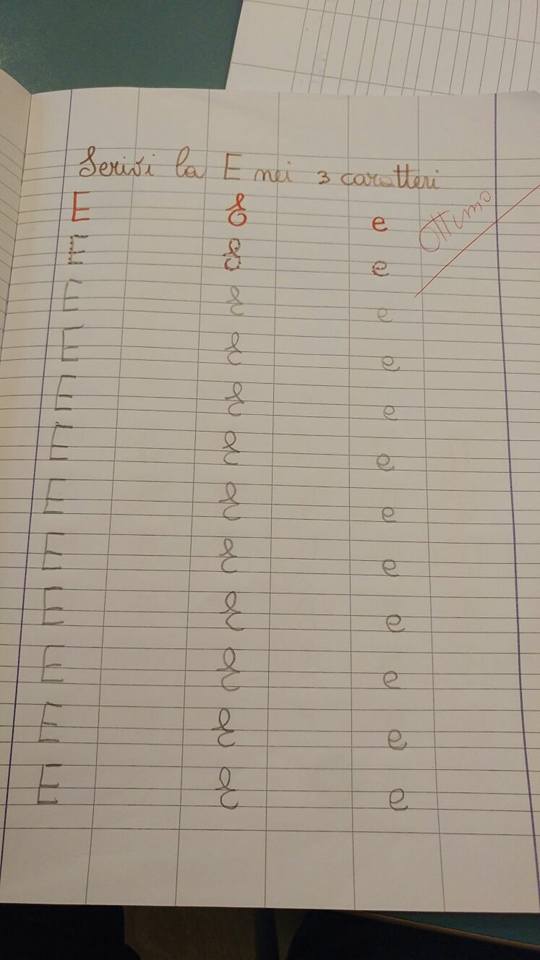 Scrivi la E nei 3 caratteri
E E e
Ottimo
E E e
E E e
E E e
E E e
E E e
E E e
E E e
E E e
E E e
E E e
E E e